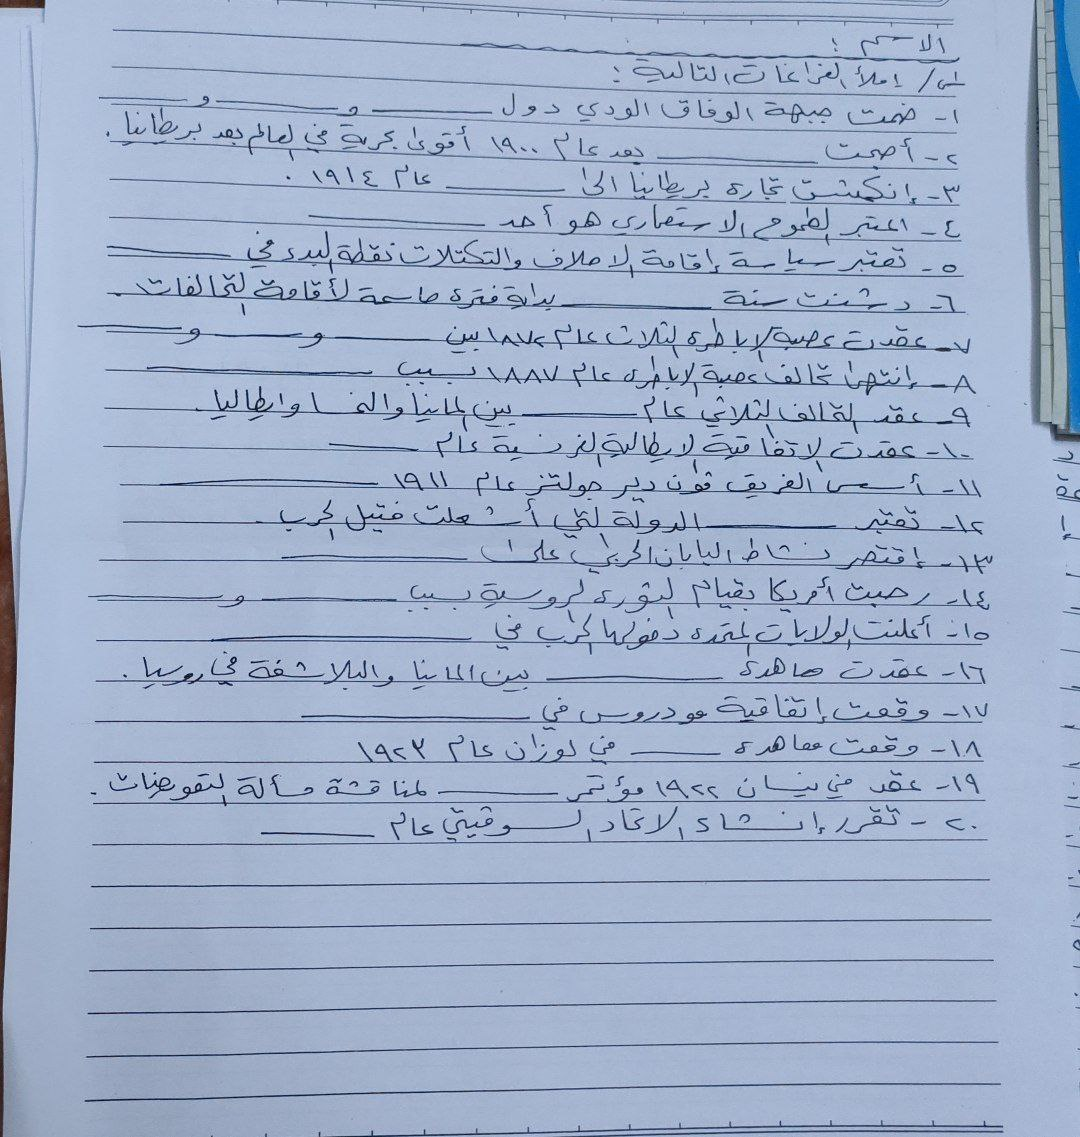 الاسم :
س/ إملأ الفراغات التالية :
١- ضمت جبهة الوفاق الودي دول ـــــ و ـــــ و ـــــ
٢- أصبحت ـــــ بعد عام ١٩٠٠ أقوى بحرية في العالم بعد بريطانيا .
٣- إنكمشت تجارة بريطانيا الى ـــــ عام ١٩١٤ .
٤- اعتبر الطموح الاستعماري هو أحد ـــــ
٥- تعتبر سياسة إقامة الاحلاف والتكتلات نقطة البدء في ـــــ
٦- دشنت سنة ـــــ بداية فترة حاسمة لأقامة التحالفات .
٧- عقدت عصبة الاباطرة الثلاث عام ١٨٧٢ بين ـــــ و ـــــ و ـــــ
٨- إنتهى تحالف عصبة الاباطرة عام ١٨٨٧ بسبب ـــــ
٩- عقد التحالف الثلاثي عام ـــــ بين المانيا والنمسا وايطاليا .
١٠- عقدت الاتفاقية الايطالية الفرنسية عام ـــــ
١١- أسس الفريق فون دير جولتز عام ١٩١١ ـــــ
١٢- تعتبر ـــــ الدولة التي أشعلت فتيل الحرب .
١٣- إقتصر نشاط اليابان الحربي على ـــــ
١٤- رحبت أمريكا بقيام الثورة الروسية بسبب ـــــ و ـــــ
١٥- أعلنت الولايات المتحدة دخولها الحرب في ـــــ
١٦- عقدت معاهدة ـــــ بين المانيا والبلاشفة في روسيا .
١٧- وقعت إتفاقية مودروس في ـــــ
١٨- وقعت معاهدة ـــــ في لوزان عام ١٩٢٣
١٩- عقد في نيسان ١٩٢٢ مؤتمر ـــــ لمناقشة مسألة التعويضات .
٢٠- تقرر إنشاء الاتحاد السوفيتي عام ـــــ